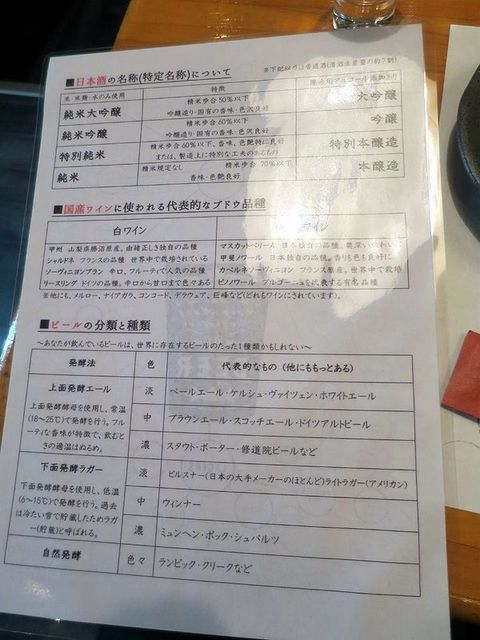 ■日本酒の名称(特定名称)について
※下記以外は普通酒(清酒生産量の約7割)
米・米麹・水のみ使用 特徴
純米大吟醸 精米歩合50%以下 大吟醸
吟醸造り・固有の香味・色沢良好
純米吟醸 精米歩合60%以下 吟醸
吟醸造り・固有の香味・色沢良好
特別純米 精米歩合60%以下、香味、色艶特に良好 特別本醸造
または、製造上に特別な工夫のあるもの
純米 精米規定なし 精米歩合 70%以下 本醸造
香味・色艶良好
■国産ワインに使われる代表的なブドウ品種
白ワイン ワイン
甲州 山梨県勝沼原産。由緒正しき独自の品種
マスカットベリーA 日本独自の品種。
シャルドネ フランスの品種 世界中で栽培されている
甲斐ノワール 日本独自の品種。香りも色も良好
ソーヴィニヨンブラン 辛口、フルーティで人気の品種
カベルネソーヴィニヨン フランス原産。世界中で栽培
リースリング ドイツの品種。辛口から甘口まで色々ある
ピノワール ブルゴーニュを代表する有名品種
※他にも、メルロー、ナイアガラ、コンコード、デラウェア、巨峰など(どれもワインにされています)。
■ビールの分類と種類
～あなたが飲んでいるビールは、世界に存在するビールのたった1種類かもしれない～
発酵法 色 代表的なもの (他にももっとある)
上面発酵エール
上面発酵酵母を使用し、常温
(18～25℃)で発酵を行う。フル
ーティな香味が特徴で、飲むと
きの適温はぬるめ。
淡 ペールエール・ケルシュ・ヴァイツェン・ホワイトエール
中 ブラウンエール・スコッチエール・ドイツアルトビール
濃 スタウト・ポーター・修道院ビールなど
下面発酵ラガー
下面発酵酵母を使用し、低温
(6～15℃)で発酵を行う。過去
は冷たい雪で貯蔵したためラガ
ー(貯蔵)と呼ばれる。
淡 ピルスナー(日本の大手メーカーのほとんど)ライトラガー(アメリカン)
中 ウィンナー
濃 ミュンヘン・ボック・シュバルツ
自然発酵 色々 ランビック・クリークなど